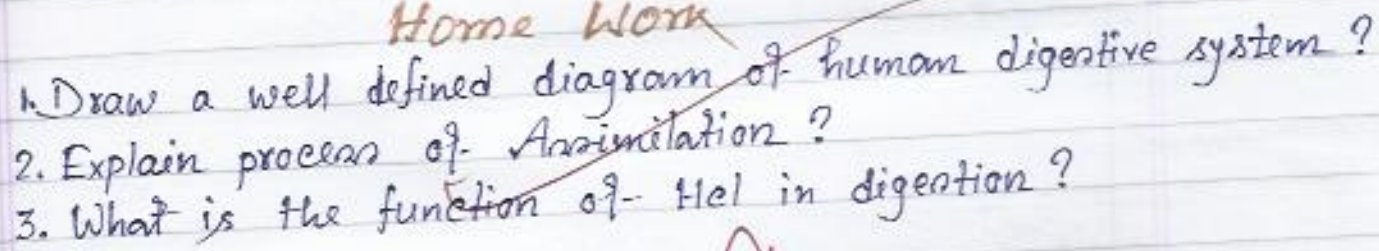 Home Work
1. Draw a well defined diagram of human digestive system ?
2. Explain process of Assimilation ?
3. What is the function of Hcl in digestion ?